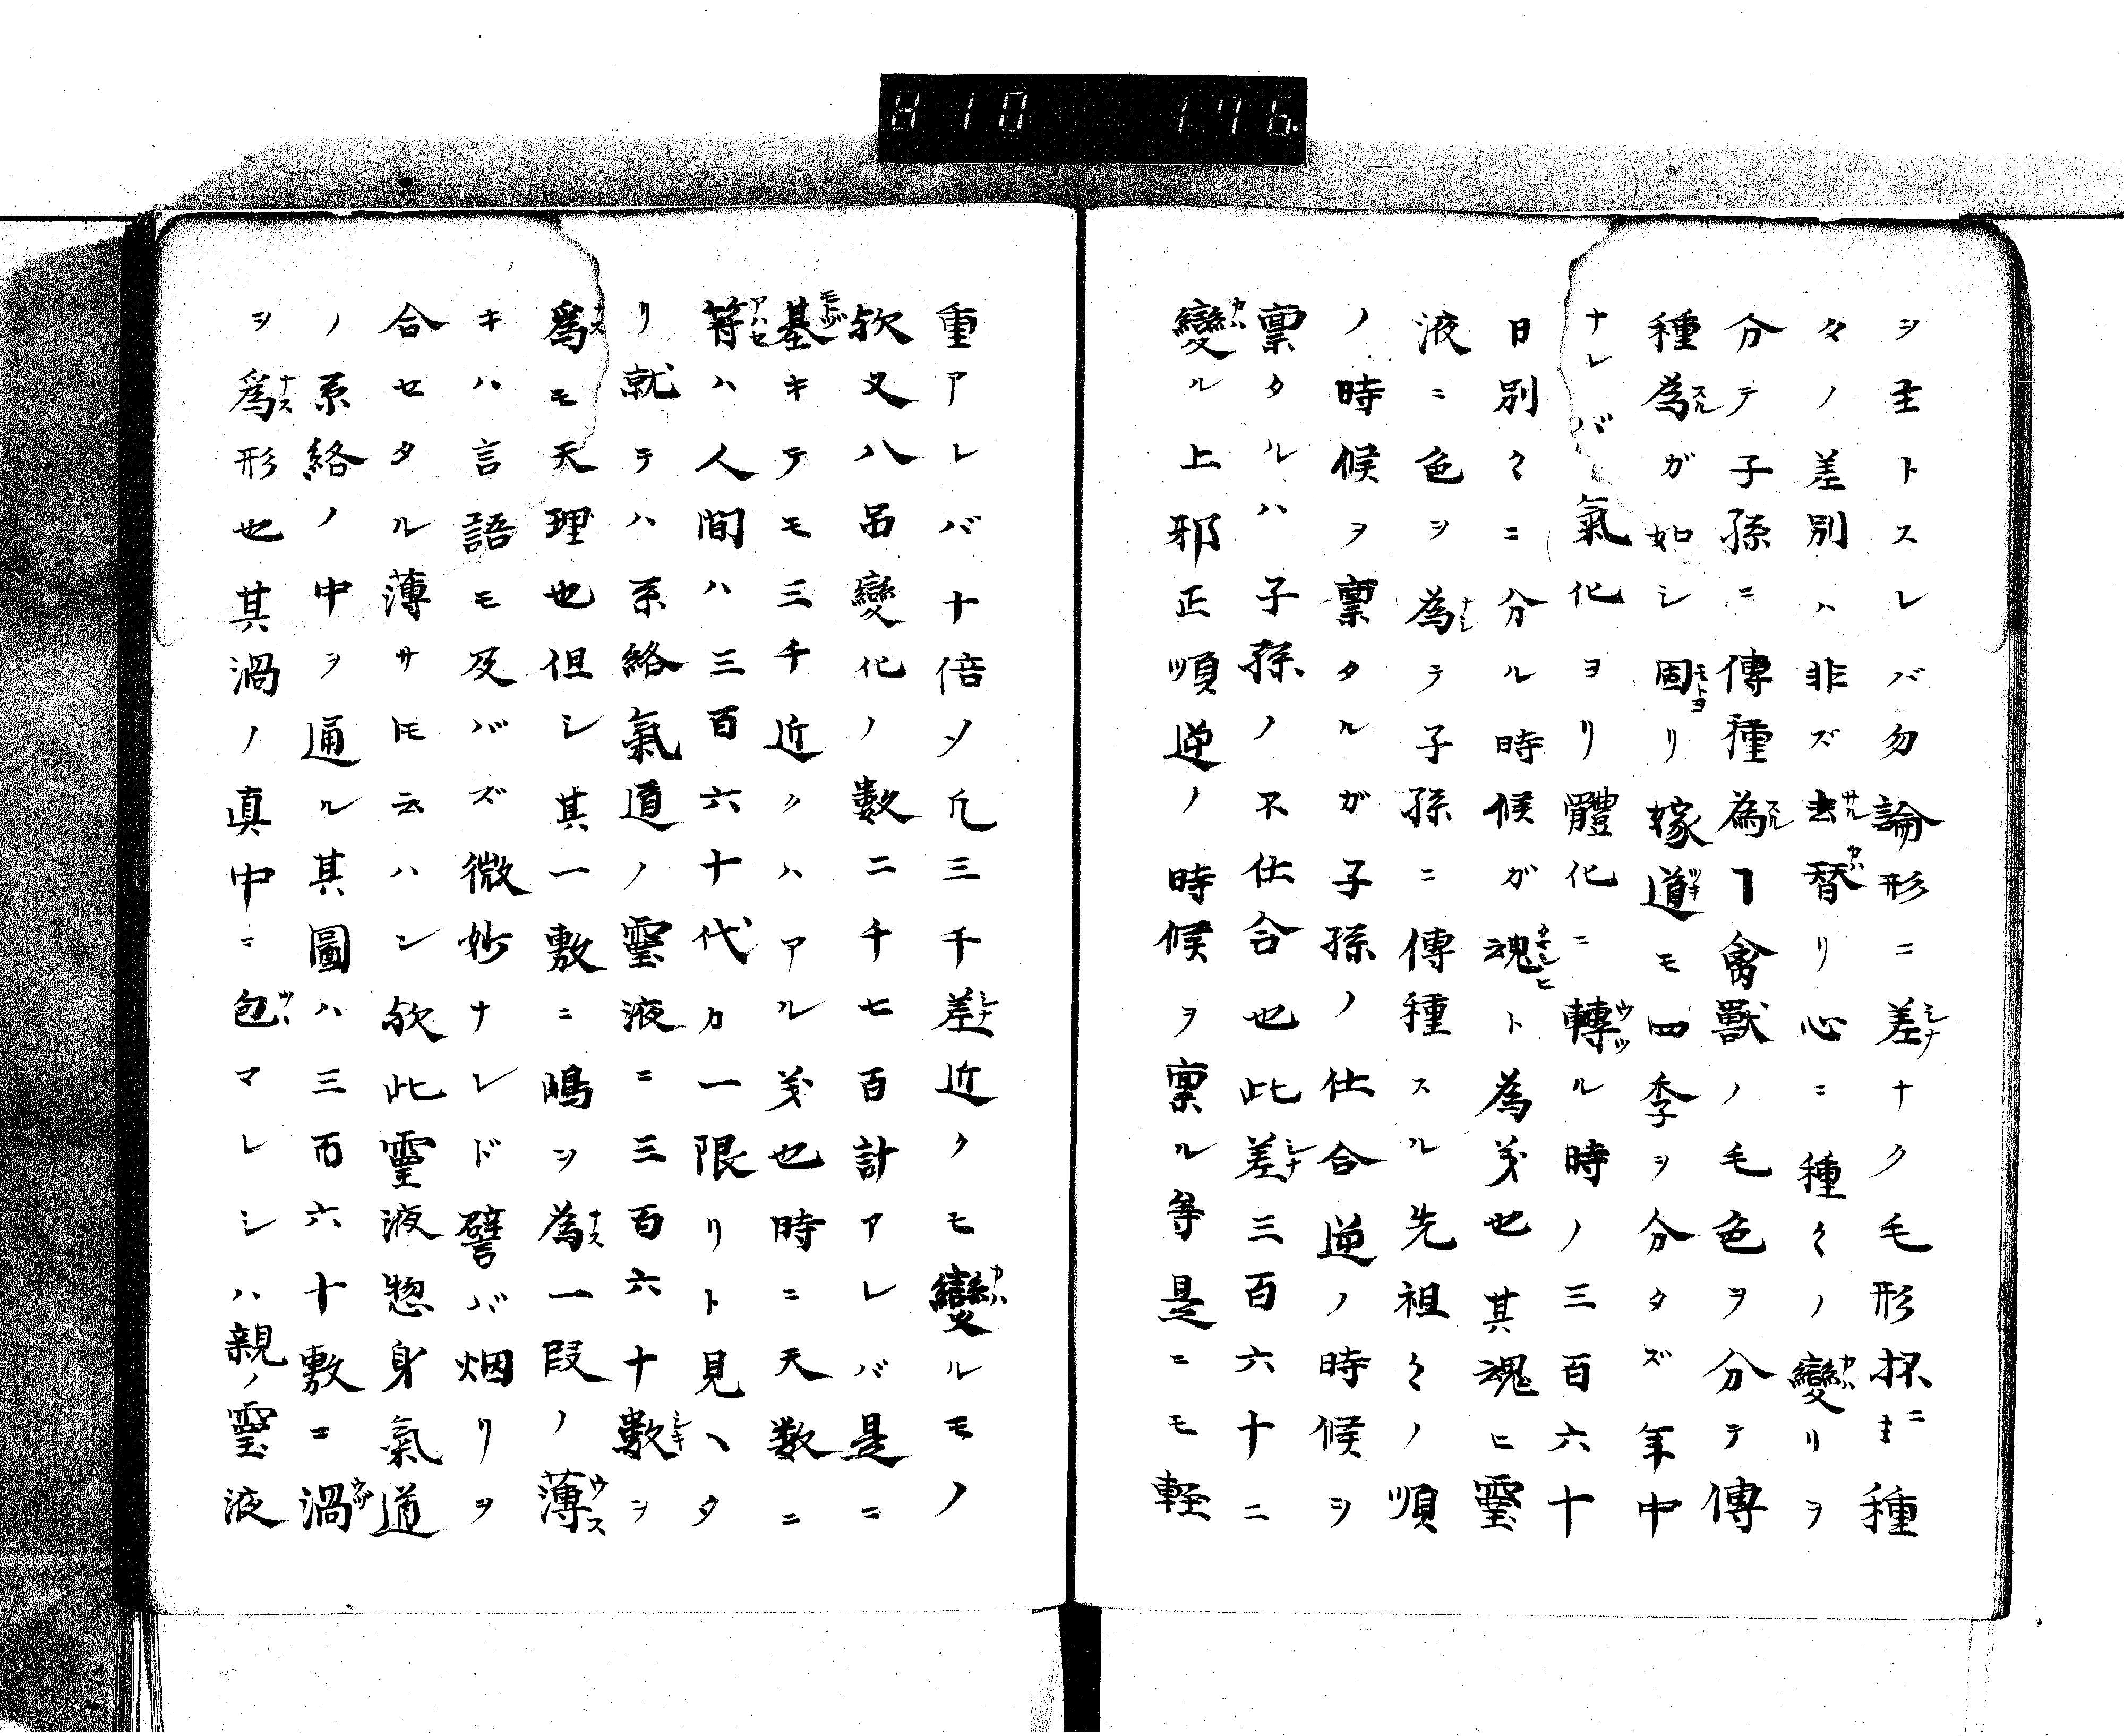 810 176
ヲ主トスレバ勿論形ニ差ナク毛形抔ニ種
々ノ差別ハ非ズ去替リ心ニ種々ノ變リヲ
分テ子孫ニ傳種為ヿ禽獸ノ毛色ヲ分テ傳
種為ガ如シ固リ嫁道モ四季ヲ分タズ年中
ナレバ氣化ヨリ體化ニ轉ル時ノ三百六十
日別々ニ分ル時候ガ魂ト為㕝也其魂ヒ靈
液ニ色ヲ為テ子孫ニ傳種スル先祖々ノ順
ノ時候ヲ稟タルガ子孫ノ仕合逆ノ時候ヲ
稟タルハ子孫ノ不仕合也此差三百六十ニ
變ル上邪正順逆ノ時候ヲ稟ル等是ニモ軽
重アレバ十倍ソ凢三千差近クモ變ルモノ
欤又八卦變化ノ數二千七百計アレバ是ニ
基キテモ三千近クハアル㕝也時ニ天数ニ
符ハ人間ハ三百六十代カ一限リト見ヘタ
リ就テハ系絡氣道ノ靈液ニ三百六十數ヲ
爲モ天理也但シ其一敷ニ鳴ツ為一段ノ薄
キハ言語モ及バズ微妙ナレド譬バ烟リヲ
合セタル薄サ𪜈云ハン欤此靈液惣身氣道
ノ系絡ノ中ヲ通ル其圖ハ三百六十敷ニ渦
ヲ爲形也其渦ノ真中ニ包マレシハ親ノ靈液